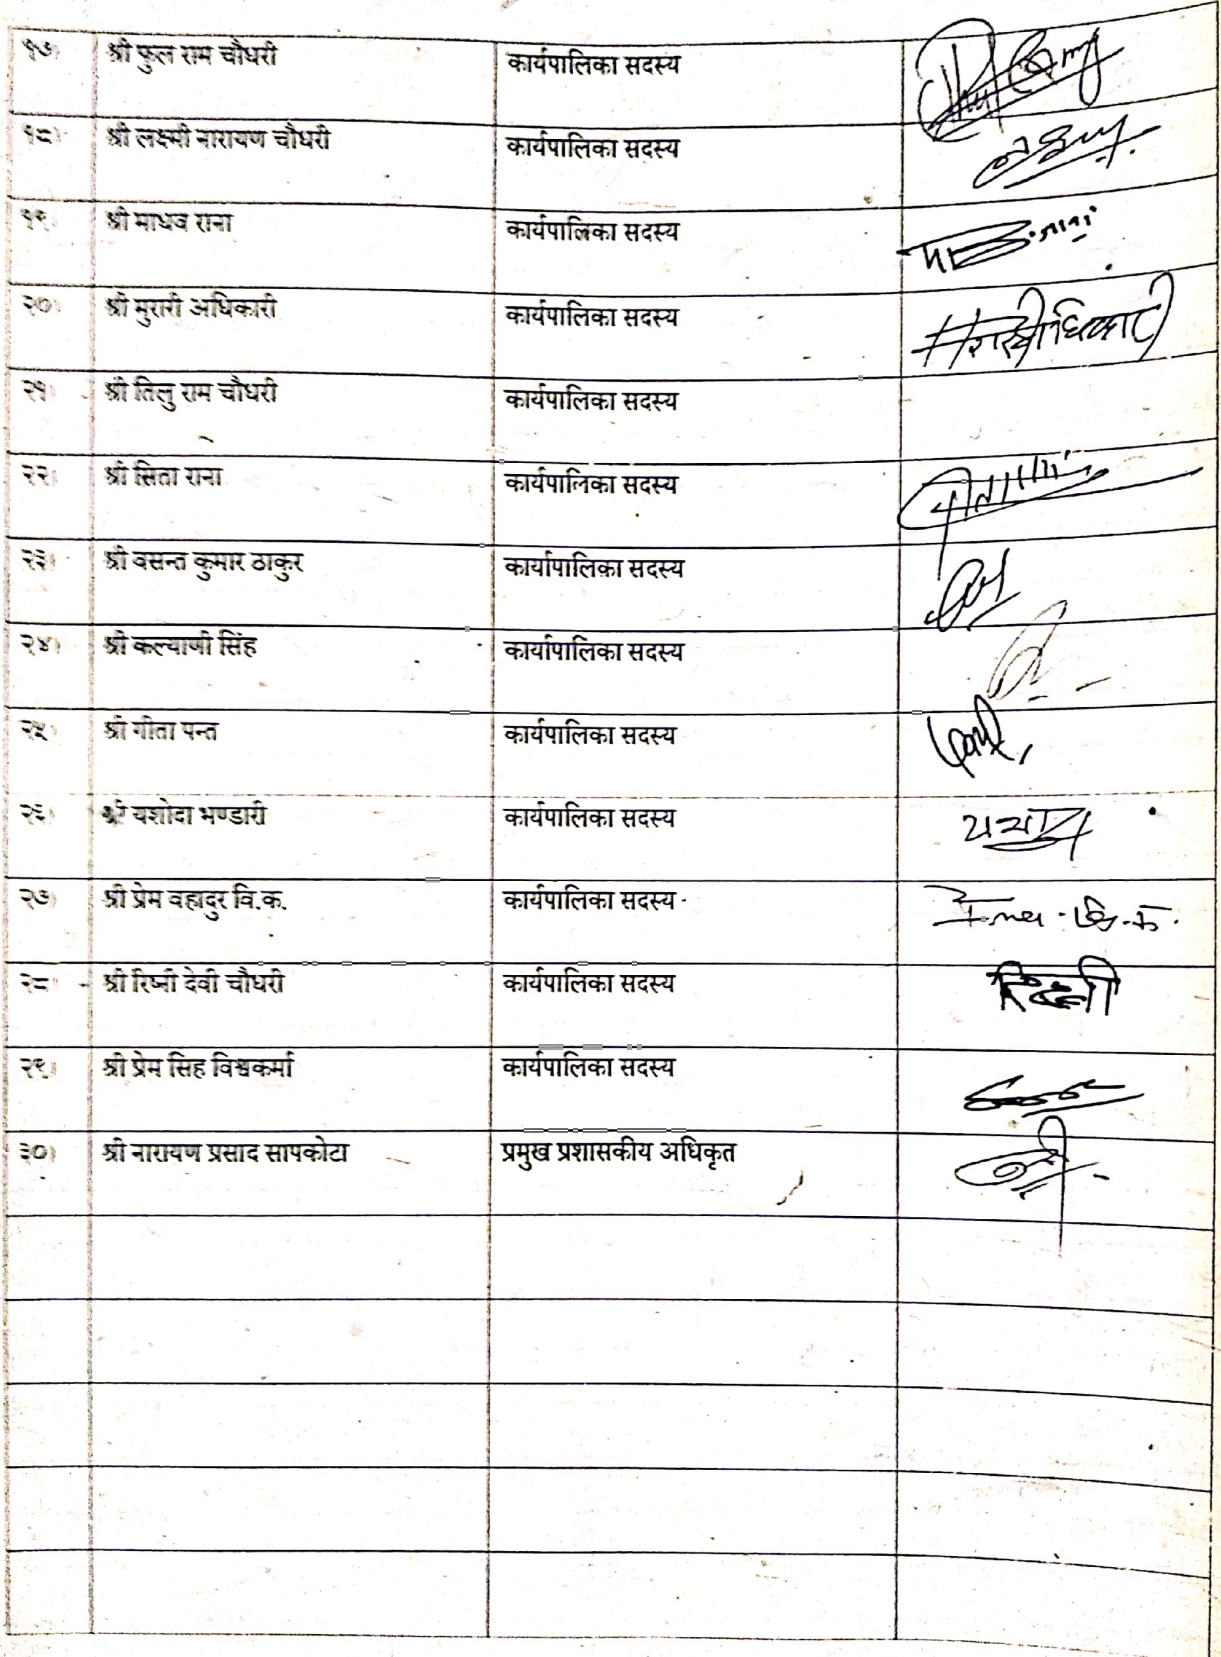 १७। श्री फुल राम चौधरी कार्यपालिका सदस्य
१८। श्री लक्ष्मी नारायण चौधरी कार्यपालिका सदस्य
१९। श्री माधव राना कार्यपालिका सदस्य
२०। श्री मुरारी अधिकारी कार्यपालिका सदस्य
२१। श्री तिलु राम चौधरी कार्यपालिका सदस्य
२२। श्री सिता राना कार्यपालिका सदस्य
२३। श्री वसन्त कुमार ठाकुर कार्यापालिका सदस्य
२४। श्री कल्याणी सिंह कार्यापालिका सदस्य
२५। श्री गीता पन्त कार्यपालिका सदस्य
२६। श्री यशोदा भण्डारी कार्यपालिका सदस्य
२७। श्री प्रेम वहादुर वि.क. कार्यपालिका सदस्य
२८। श्री रिष्नी देवी चौधरी कार्यपालिका सदस्य
२९। श्री प्रेम सिह विश्वकर्मा कार्यपालिका सदस्य
३०। श्री नारायण प्रसाद सापकोटा प्रमुख प्रशासकीय अधिकृत